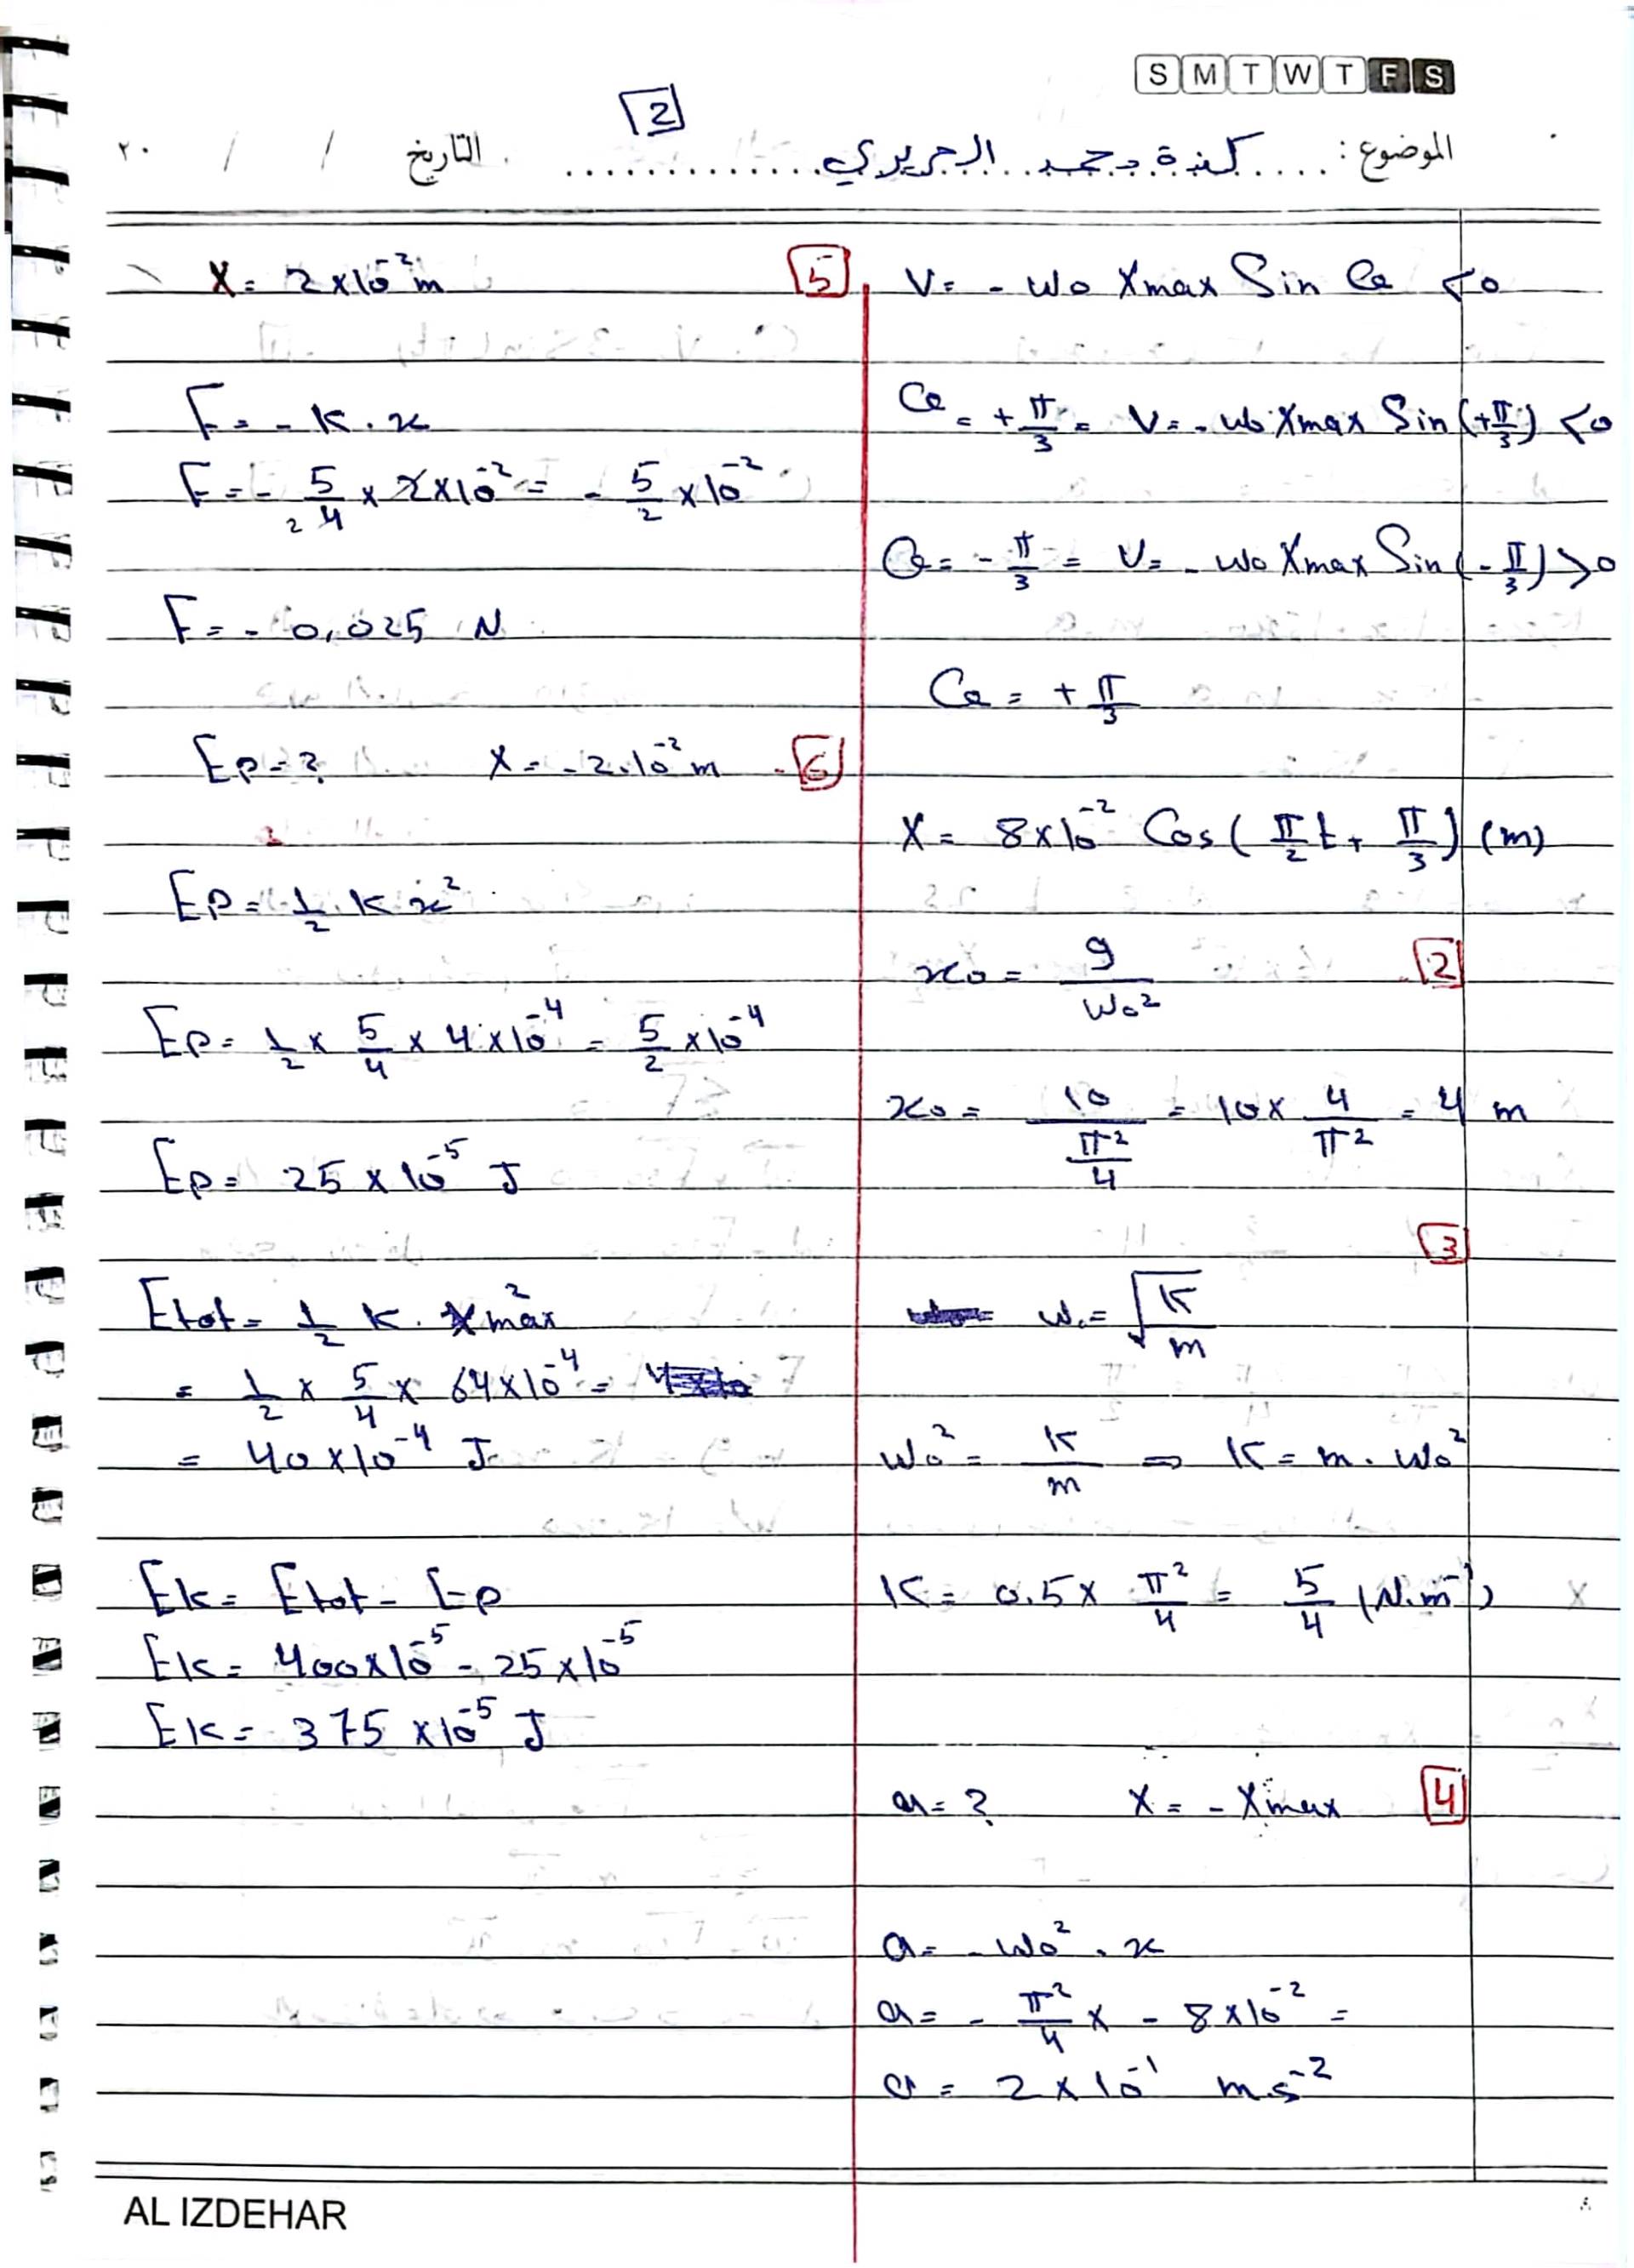 S M T W T F S
2
الموضوع : .... كندة محمد الجريري .............. التاريخ / / ٢٠
V = - ω₀ Xmax Sin φ < 0
φ = + π/3 = V = - ω₀ Xmax Sin (+ π/3) < 0
φ = - π/3 = V = - ω₀ Xmax Sin (- π/3) > 0
φ = + π/3
X = 8 × 10⁻² Cos ( π/2 t + π/3 ) (m)
2
x₀ = g / ω₀²
x₀ = 10 / (π²/4) = 10 × 4/π² = 4 m
3
ω₀ = √(K/m)
ω₀² = K/m ⇒ K = m . ω₀²
K = 0.5 × π²/4 = 5/4 (N.m⁻¹)
4 a = ? X = - Xmax
a = - ω₀² . x
a = - π²/4 × - 8 × 10⁻² =
a = 2 × 10⁻¹ m s⁻²
5 X = 2 × 10⁻² m
F = - K . x
F = - 5/4 × 2 × 10⁻² = - 5/2 × 10⁻²
2
F = - 0,025 N
6 Ep = ? X = - 2.10⁻² m
Ep = 1/2 K x²
Ep = 1/2 × 5/4 × 4 × 10⁻⁴ = 5/2 × 10⁻⁴
Ep = 25 × 10⁻⁵ J
Etot = 1/2 K . Xmax²
= 1/2 × 5/4 × 64 × 10⁻⁴ =
= 40 × 10⁻⁴ J
Ek = Etot - Ep
Ek = 400 × 10⁻⁵ - 25 × 10⁻⁵
Ek = 375 × 10⁻⁵ J
AL IZDEHAR